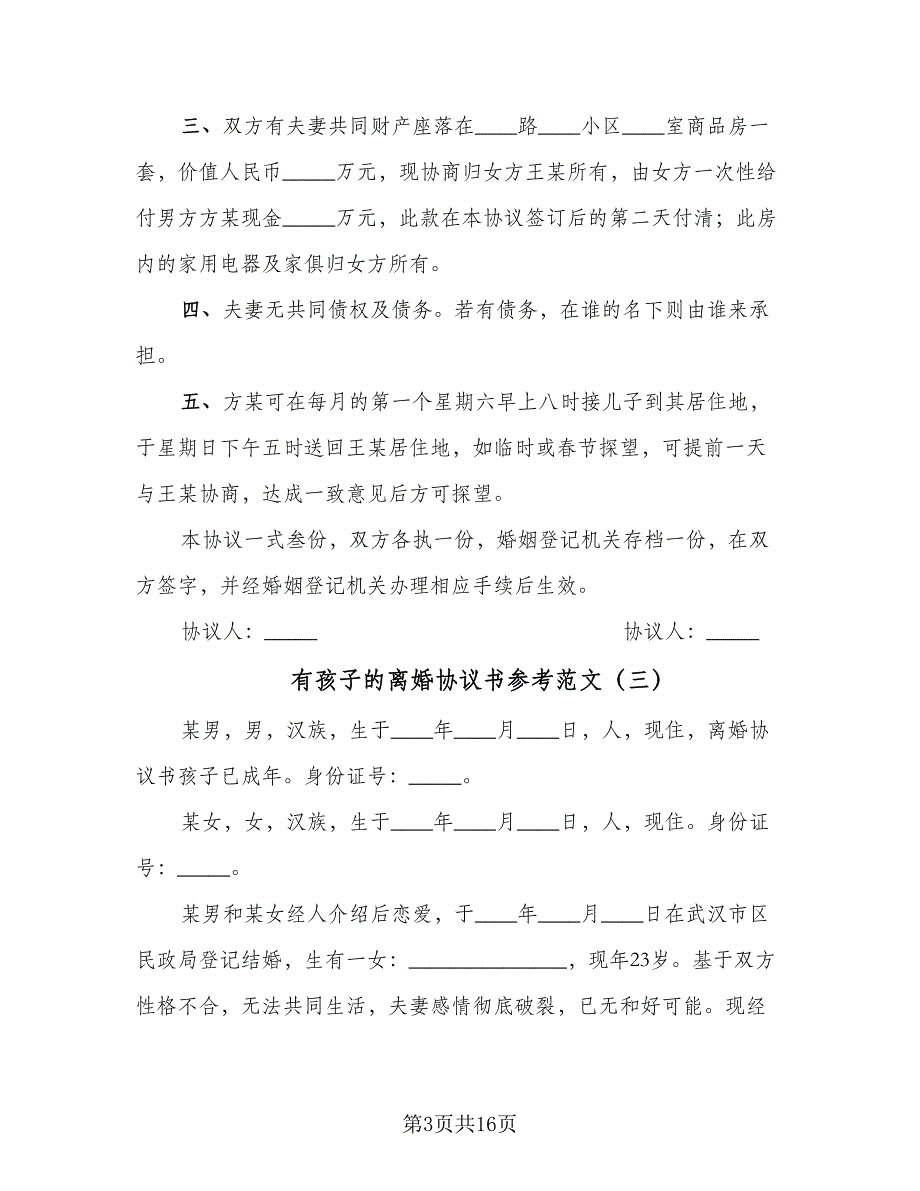 三、双方有夫妻共同财产座落在____路____小区____室商品房一
套，价值人民币_____万元，现协商归女方王某所有，由女方一次性给
付男方方某现金_____万元，此款在本协议签订后的第二天付清；此房
内的家用电器及家俱归女方所有。
四、夫妻无共同债权及债务。若有债务，在谁的名下则由谁来承
担。
五、方某可在每月的第一个星期六早上八时接儿子到其居住地，
于星期日下午五时送回王某居住地，如临时或春节探望，可提前一天
与王某协商，达成一致意见后方可探望。
本协议一式叁份，双方各执一份，婚姻登记机关存档一份，在双
方签字，并经婚姻登记机关办理相应手续后生效。
协议人：_____ 协议人：_____
有孩子的离婚协议书参考范文（三）
某男，男，汉族，生于____年____月____日，人，现住，离婚协
议书孩子已成年。身份证号：_____。
某女，女，汉族，生于____年____月____日，人，现住。身份证
号：_____。
某男和某女经人介绍后恋爱，于____年____月____日在武汉市区
民政局登记结婚，生有一女：_______________，现年23岁。基于双方
性格不合，无法共同生活，夫妻感情彻底破裂，已无和好可能。现经
第3页共16页